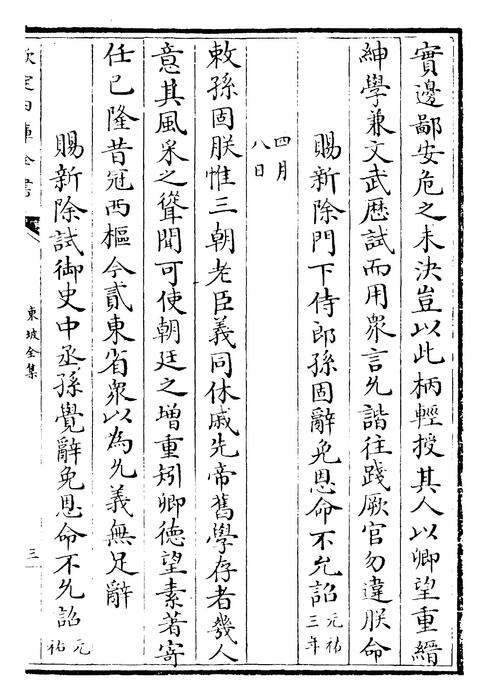 實邊鄙安危之未決豈以此柄輕授其人以卿望重縉
紳學兼文武歴試而用衆言允諧往踐厥官勿違朕命
賜新除門下侍郎孫固辭免恩命不允詔元祐三年
四月八日
敕孫固朕惟三朝老臣義同休戚先帝舊學存者幾人
意其風采之聳聞可使朝廷之增重矧卿德望素著寄
任已隆昔冠西樞今貳東省衆以為允義無足辭
賜新除試御史中丞孫覺辭免恩命不允詔元祐
欽定四庫全書
東坡全集
三